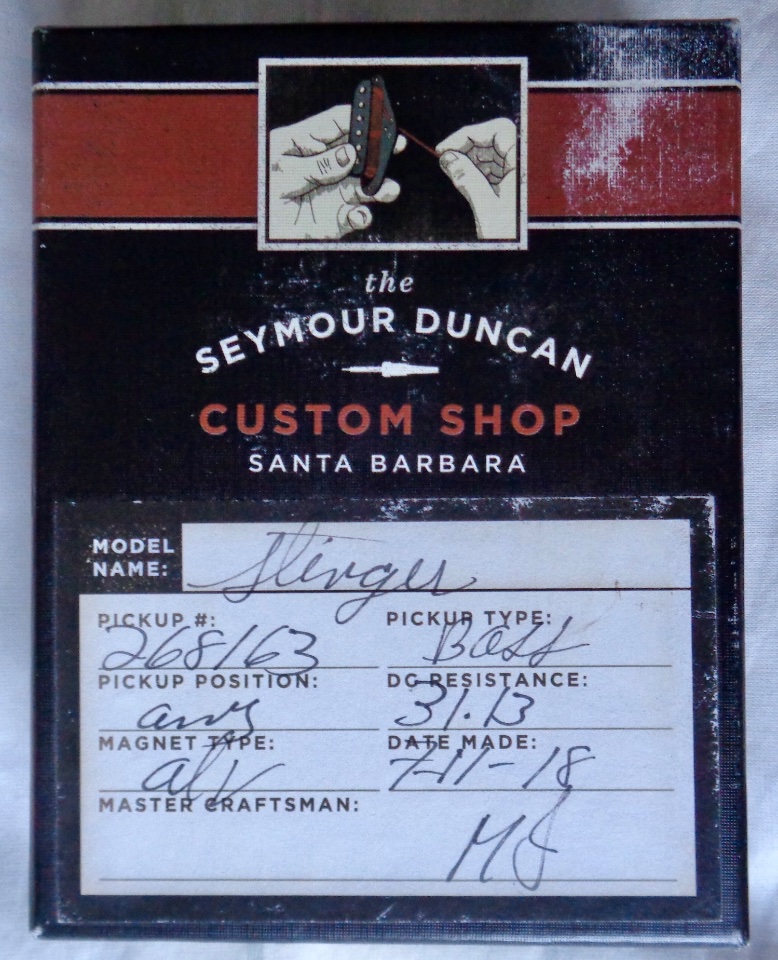 the
SEYMOUR DUNCAN
CUSTOM SHOP
SANTA BARBARA
MODEL NAME: Stinger
PICKUP #: PICKUP TYPE:
268163 Bass
PICKUP POSITION: DC RESISTANCE:
any 31.13
MAGNET TYPE: DATE MADE:
7-11-18
MASTER CRAFTSMAN:
MJ